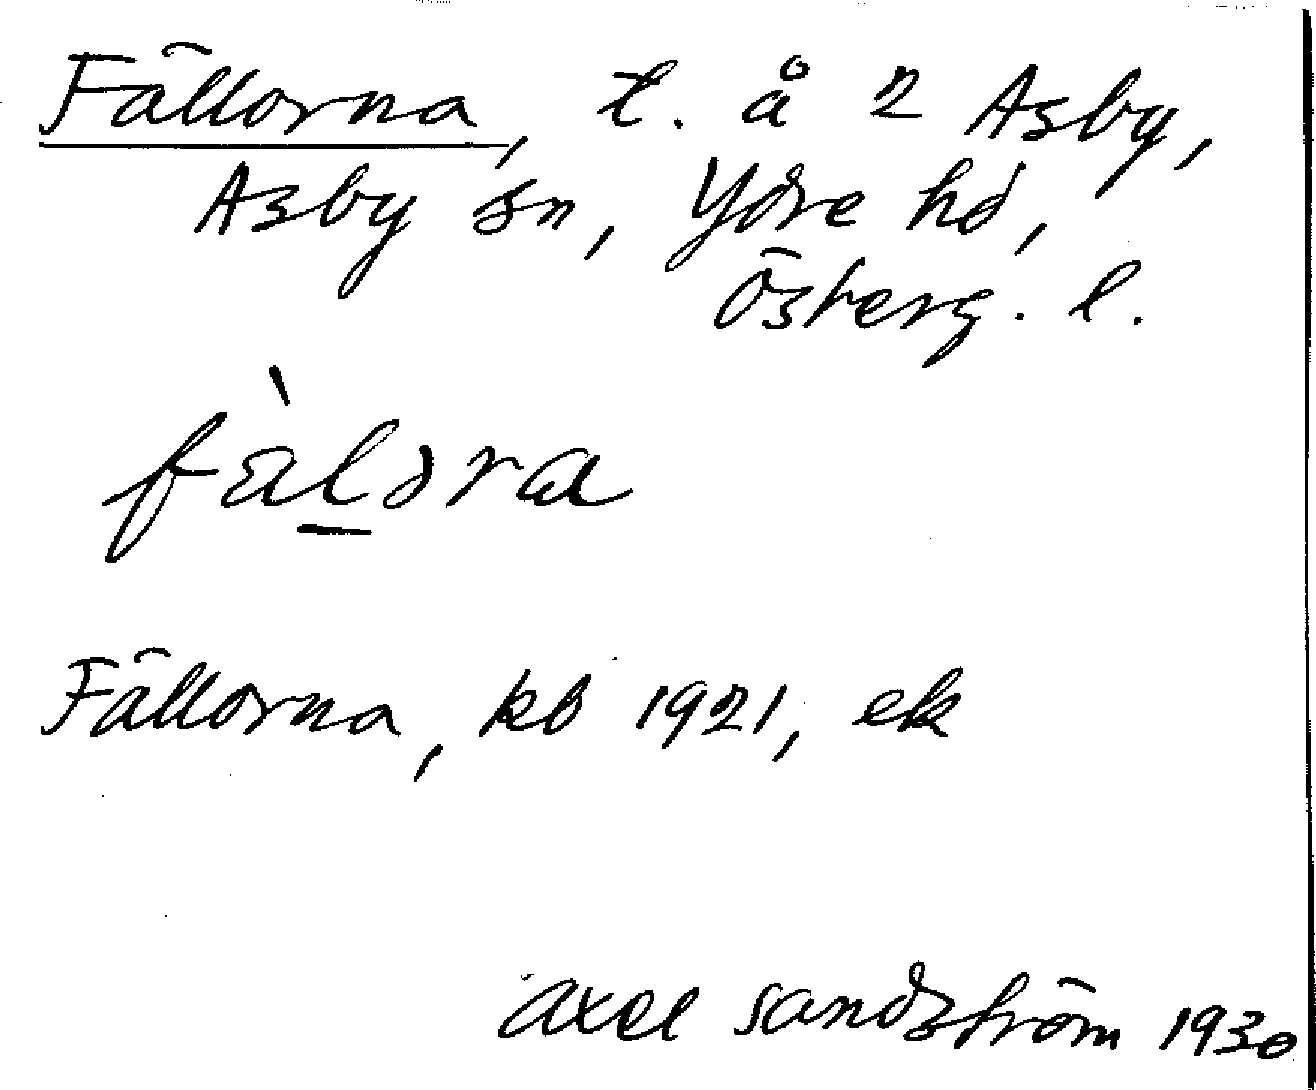 Fällorna, t. å 2 Asby,
Asby sn, Ydre hd,
Österg. l.
fàlɔra
Fällorna, kb 1921, ek
Axel Sandström 1930